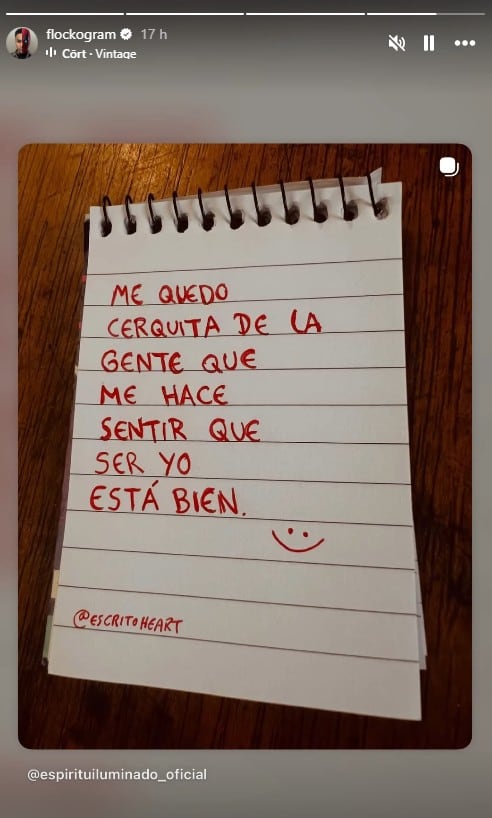 flockogram 17 h
Cōrt · Vintage
ME QUEDO
CERQUITA DE LA
GENTE QUE
ME HACE
SENTIR QUE
SER YO
ESTÁ BIEN.
@ESCRITOHEART
@espirituiluminado_oficial